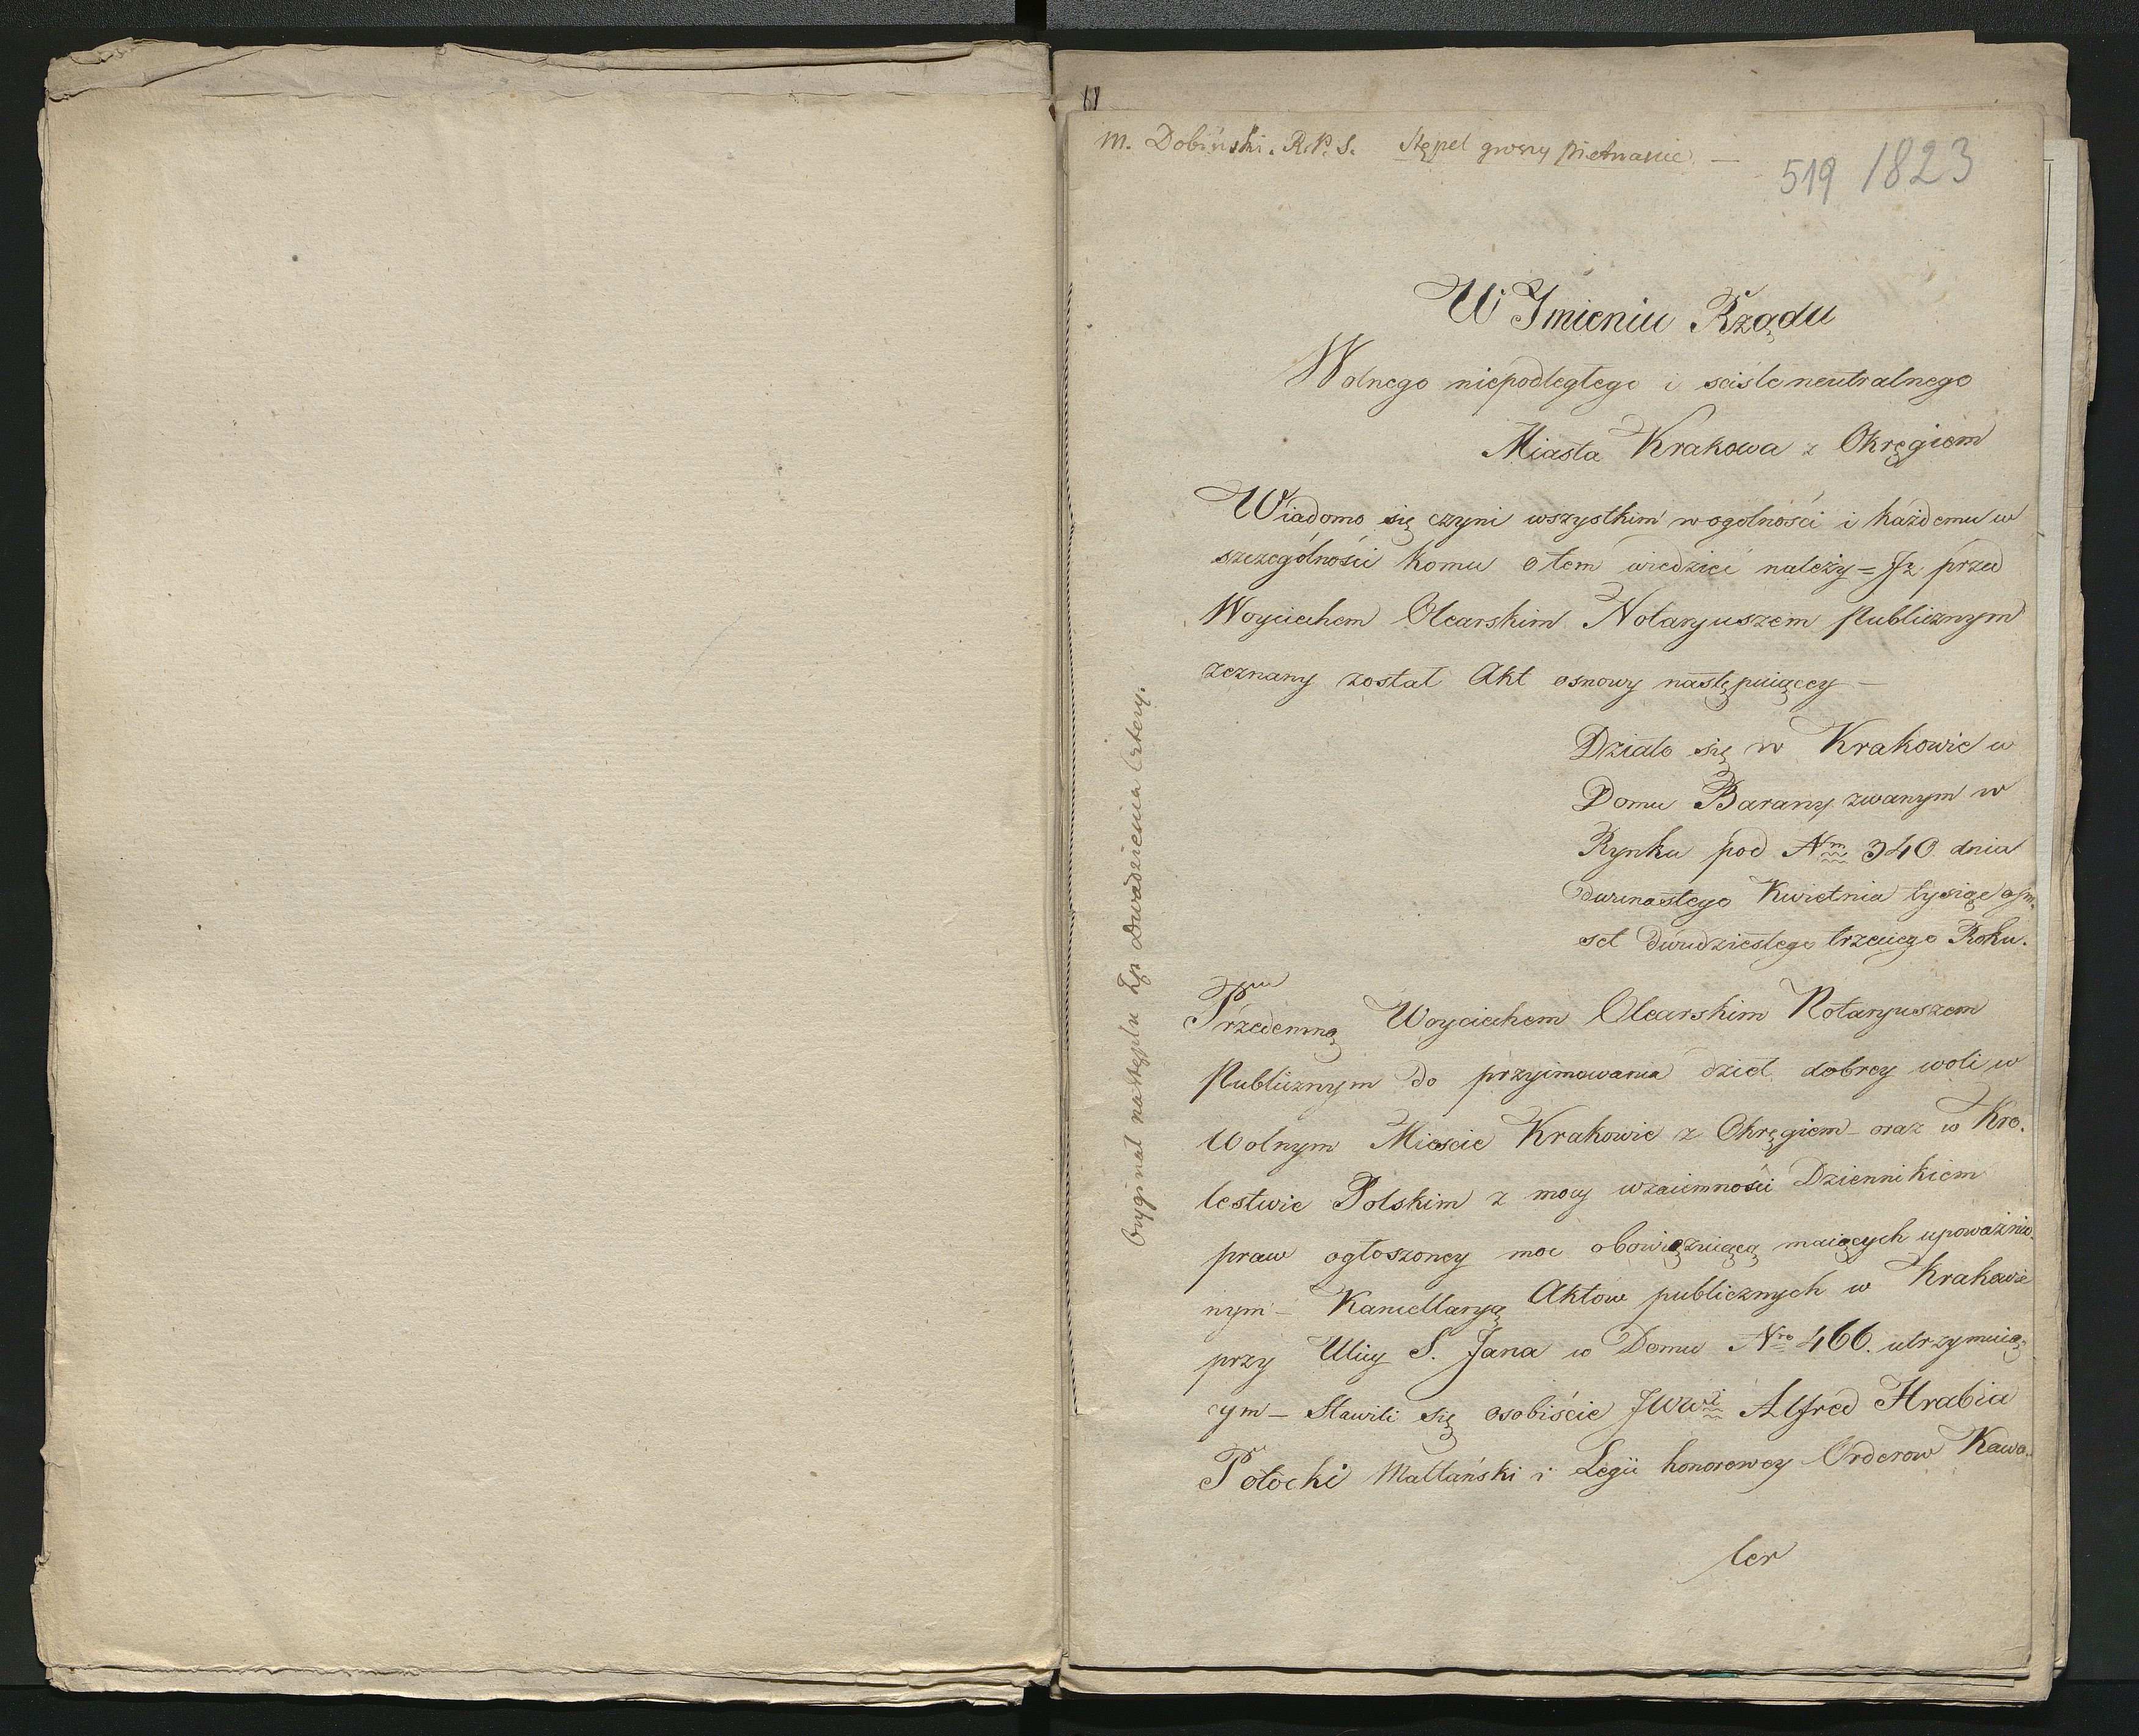 M. Dobiński. R.P.S. Stępel groszy piętnaście. —
519 1823
W Imieniu Rządu
Wolnego niepodległego i scisle neutralnego
Miasta Krakowa z Okręgiem
Wiadomo się czyni wszystkim w ogolności i każdemu w
szczególności komu o tem wiedzieć należy = Iż przed
Woyciechem Olearskim Notaryuszem Publicznym
zeznany został Akt osnowy następuiącey —
Działo się w Krakowie w
Domu Barany zwanym w
Rynku pod Nm 340. dnia
dwunastego Kwietnia tysiąc ośm-
set dwudziestego trzeciego Roku.
Przedemną Woyciechem Olearskim Notaryuszem
Publicznym do przyimowania dzieł dobrey woli w
Wolnym Mieście Krakowie z Okręgiem – oraz w Kro-
lestwie Polskim z mocy wzaiemności Dziennikiem
praw ogłoszoney moc obowięzuiącą maiących upoważnio-
nym – Kancellaryą Aktow publicznych w Krakowie
przy Ulicy S. Jana w Domu Nro 466. utrzymuią-
cym – Stawili się osobiście JWWi Alfred Hrabia
Potocki Maltański i Legii honorowey Orderow Kawa-
ler
Oryginał na stęplu Zp. Dwadzieścia Cztery.